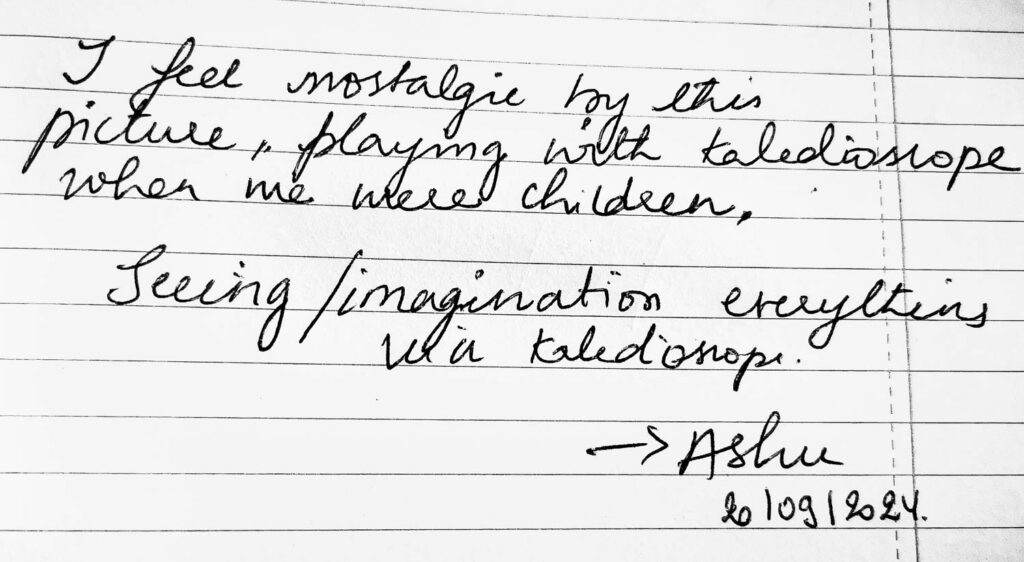 I feel nostalgic by this
picture, playing with kaledioscope
when we were children,
Seeing/imagination everything
via kaledioscope.
→ Ashu
20/09/2024.